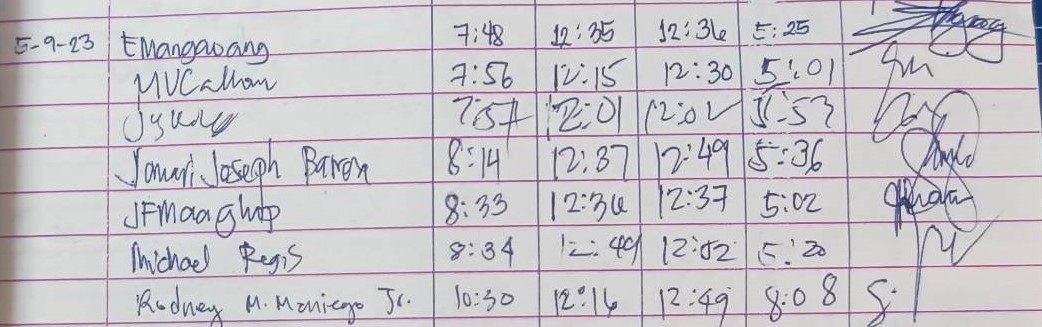 5-9-23 EMangawang 7:48 12:35 12:36 5:25
MVCalhan 7:56 12:15 12:30 5:01
7:57 12:01 12:02 5:53
Jomari Joseph Baron 8:14 12:37 12:49 5:36
JFMaaghop 8:33 12:36 12:37 5:02
Michael Regis 8:34 12:49 12:52 5:20
Rodney M. Maniego Jr. 10:30 12:16 12:49 8:08